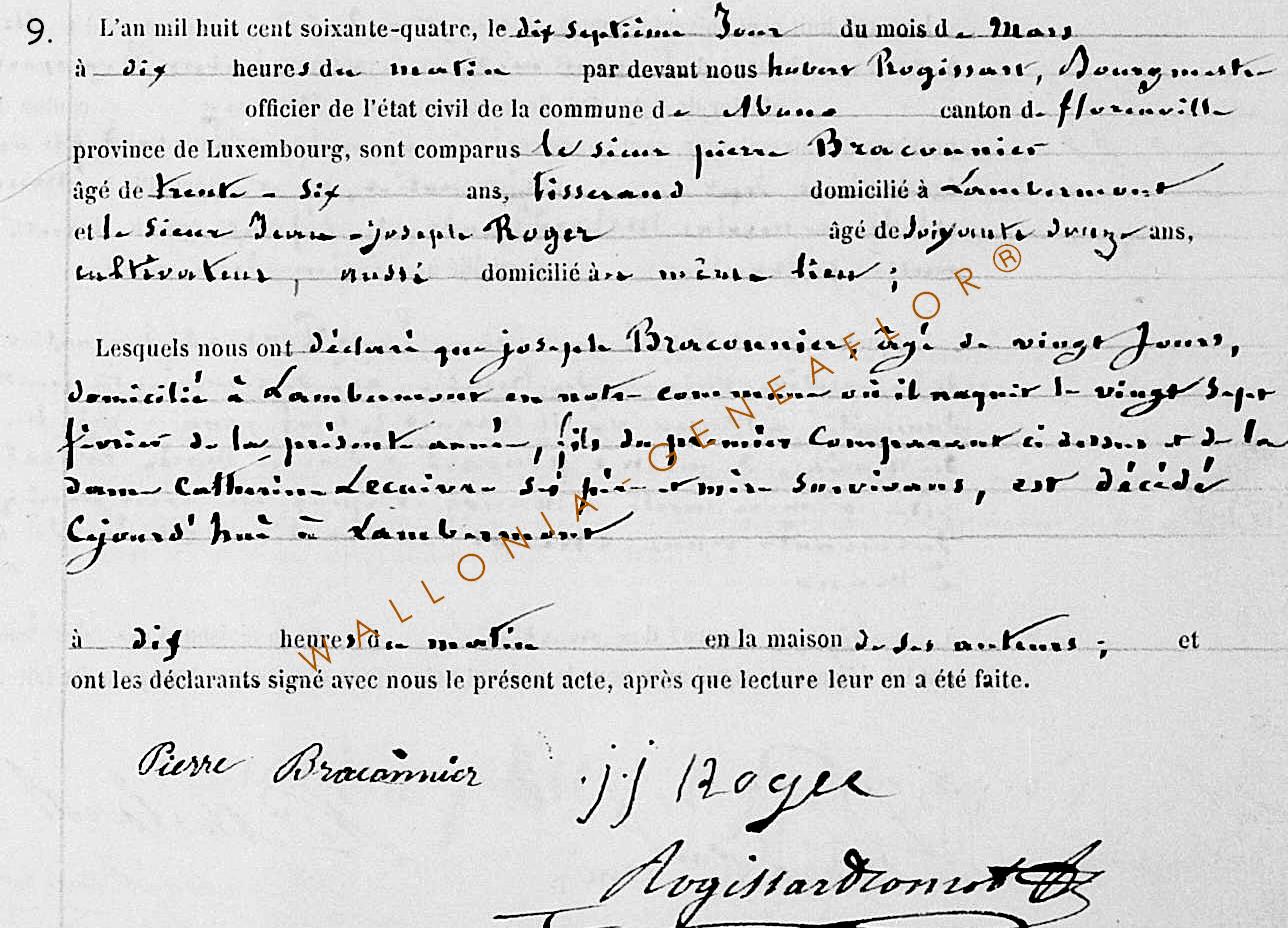 9. L'an mil huit cent soixante-quatre, le dix septième Jour du mois de Mars
à dix heures du matin par devant nous hubert Rogissart, Bourgmestre
officier de l'état civil de la commune de Muno canton de florenville
province de Luxembourg, sont comparus le sieur pierre Braconnier
âgé de trente-six ans, tisserand domicilié à Lambermont
et le Sieur Jean-joseph Roger âgé de soixante douze ans,
cultivateur, aussi domicilié à même lieu ;
Lesquels nous ont déclaré que joseph Braconnier, âgé de vingt Jours,
domicilié à Lambermont en notre commune où il naquit le vingt Sept
février de la présente année, fils du premier Comparant ci dessus et de la
dame Catherine Lecuivre Ses père et mère Survivans, est décédé
Cejourd'hui à Lambermont
à dix heures du matin en la maison de ses auteurs ; et
ont les déclarants signé avec nous le présent acte, après que lecture leur en a été faite.
Pierre Braconnier j j Roger
WALLONIA-GENEAFLOR®